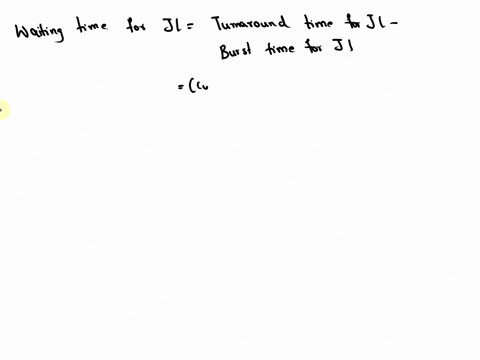 Waiting time for J1 = Turnaround time for J1 -
Burst time for J1
= (